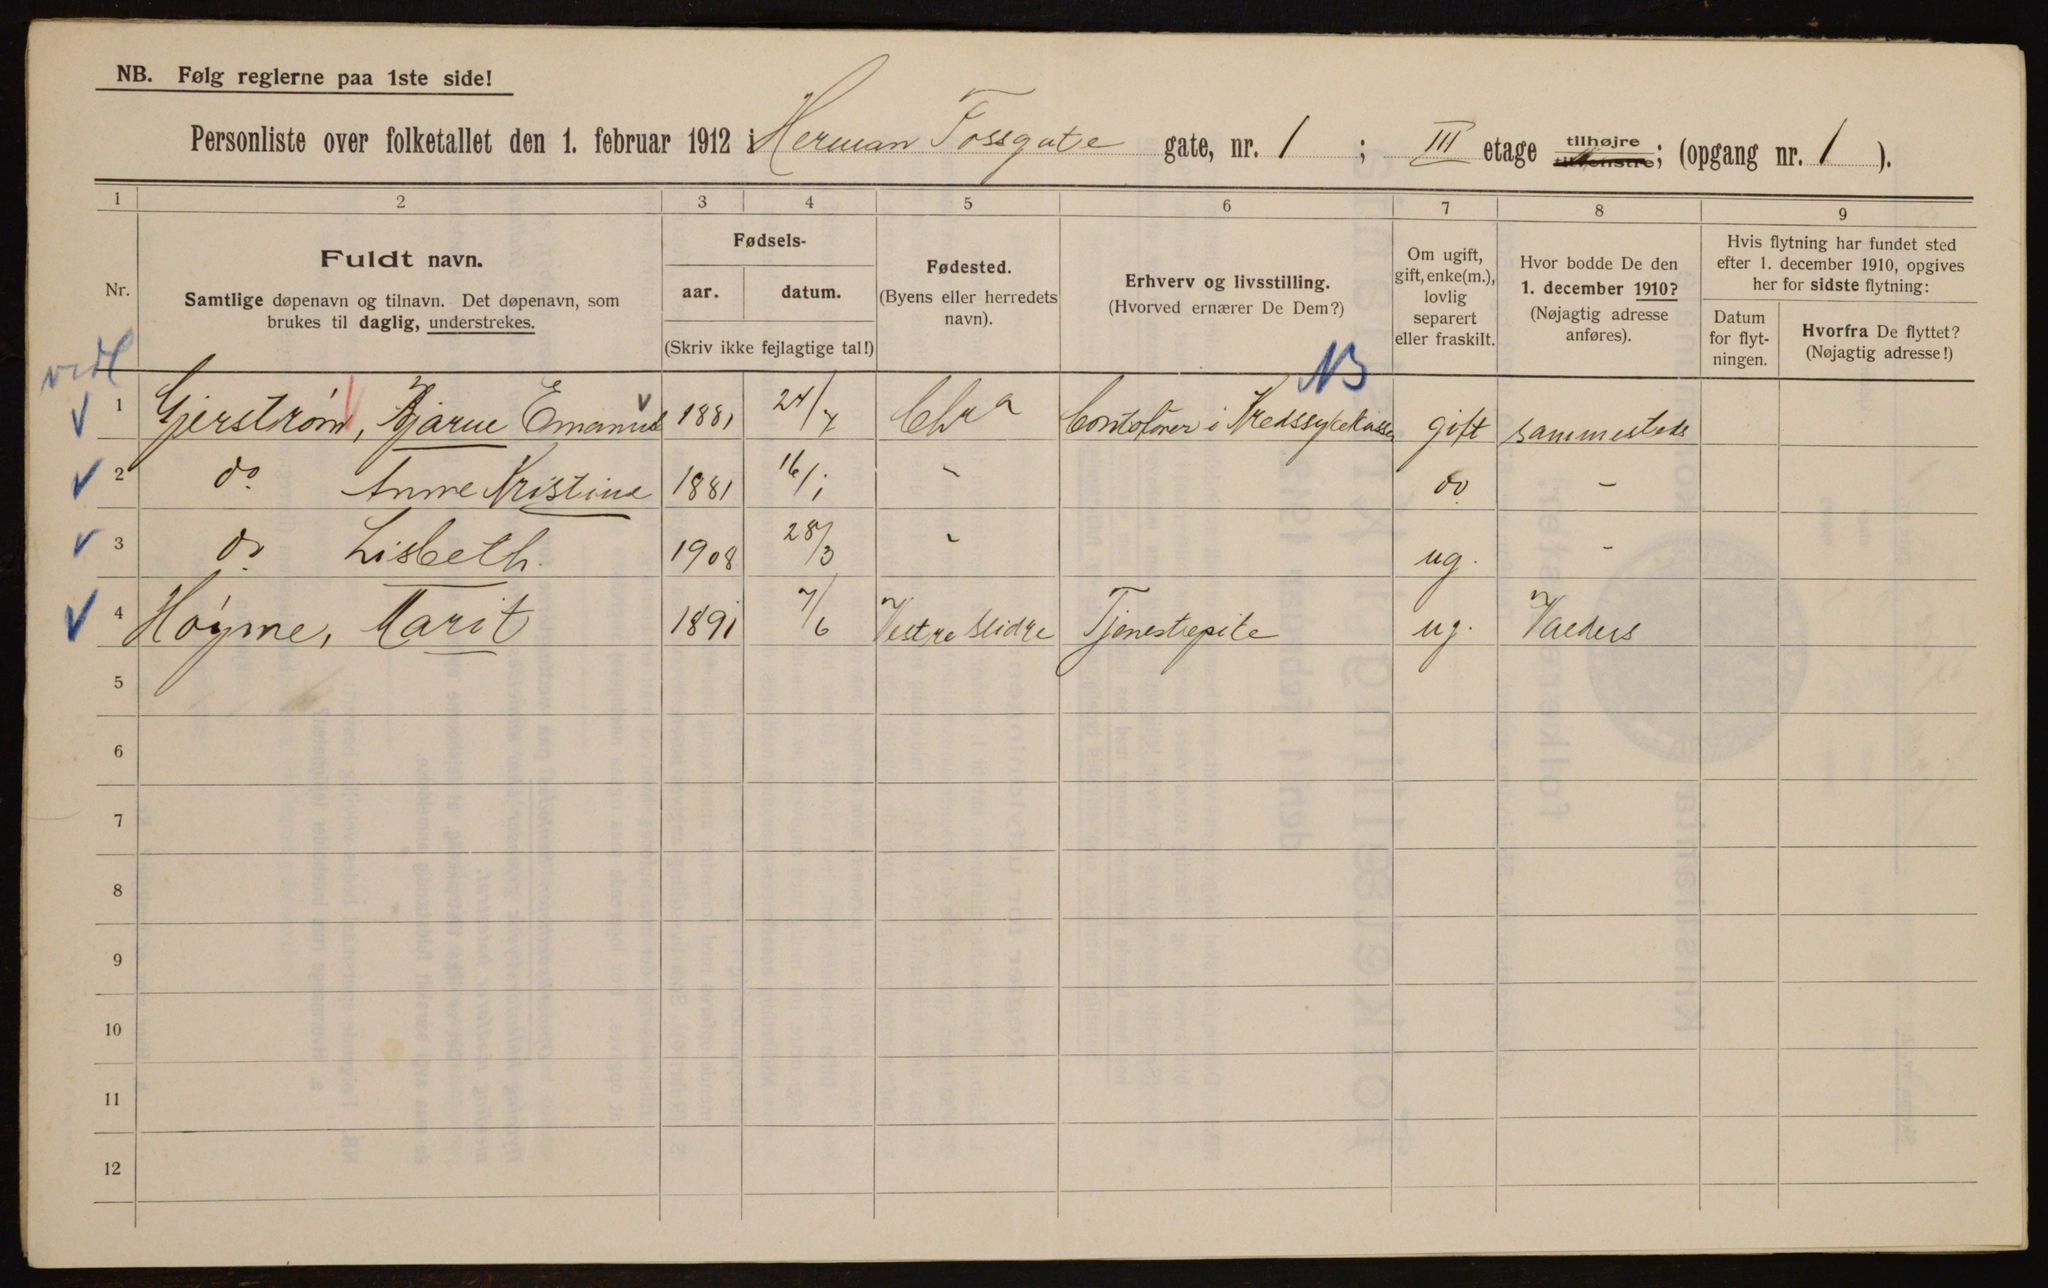 NB. Følg reglerne paa 1ste side!
Personliste over folketallet den 1. februar 1912 i Herman Fossgate gate, nr. 1 ; III etage tilhøjre tilvenstre; (opgang nr. 1 ).
1 2 3 4 5 6 7 8 9
Nr.
Fuldt navn.
Samtlige døpenavn og tilnavn. Det døpenavn, som
brukes til daglig, understrekes.
Fødsels-
aar. datum.
(Skriv ikke fejlagtige tal!)
Fødested.
(Byens eller herredets
navn).
Erhverv og livsstilling.
(Hvorved ernærer De Dem?)
Om ugift,
gift, enke(m.),
lovlig
separert
eller fraskilt.
Hvor bodde De den
1. december 1910?
(Nøjagtig adresse
anføres).
Hvis flytning har fundet sted
efter 1. december 1910, opgives
her for sidste flytning:
Datum
for flyt-
ningen.
Hvorfra De flyttet?
(Nøjagtig adresse!)
NB
1 Gjerstrøm, Bjarne Emanuel 1881 Chra Contorører i Kredssykekassen gift sammesteds
2 do Anne Kristine 1881 16/1 " do "
3 do Lisbeth. 1908 28/3 " ug. "
4 Høyme, Marit 1891 7/6 Vestre Slidre Tjenestepike ug. Valders
5
6
7
8
9
10
11
12